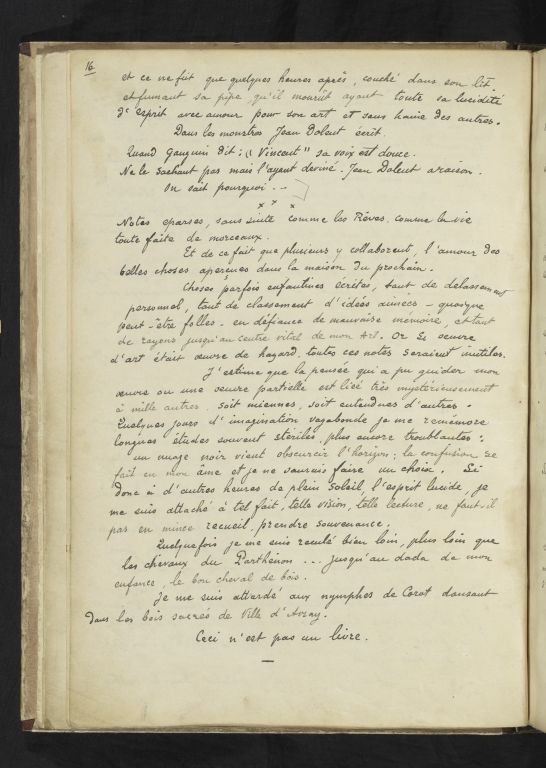 16
et ce ne fut que quelques heures après, couché dans son lit
et fumant sa pipe, qu'il mourut ayant toute sa lucidité
d'esprit avec amour pour son art et sans haine des autres.
Dans les monstres Jean Dolent écrit.
Quand Gauguin dit : "Vincent" sa voix est douce.
Ne le sachant pas mais l'ayant deviné. Jean Dolent a raison.
On sait pourquoi ...
x x x
Notes éparses, sans suite comme les Rêves, comme la vie
toute faite de morceaux.
Et de ce fait que plusieurs y collaborent, l'amour des
belles choses aperçues dans la maison du prochain.
Choses parfois enfantines écrites, tant de délassement
personnel, tant de classement d'idées aimées - quoique
peut-être folles - en défiance de mauvaise mémoire, et tant
de rayons jusqu'au centre vital de mon Art. Or si œuvre
d'art était œuvre de hazard, toutes ces notes seraient inutiles.
J'estime que la pensée qui a pu guider mon
œuvre ou une œuvre partielle est liée très mystérieusement
à mille autres, soit miennes, soit entendues d'autres.
Quelques jours d'imagination vagabonde je me remémore
longues études souvent stériles, plus encore troublantes :
un nuage noir vient obscurcir l'horizon ; la confusion se
fait en mon âme et je ne saurais faire un choix. Si
donc à d'autres heures de plein soleil, l'esprit lucide, je
me suis attaché à tel fait, telle vision, telle lecture, ne faut-il
pas en mince recueil, prendre souvenance.
Quelquefois je me suis reculé bien loin, plus loin que
les chevaux du Parthénon ... jusqu'au dada de mon
enfance, le bon cheval de bois.
Je me suis attardé aux nymphes de Corot dansant
dans les bois sacrés de Ville d'Avray.
Ceci n'est pas un livre.